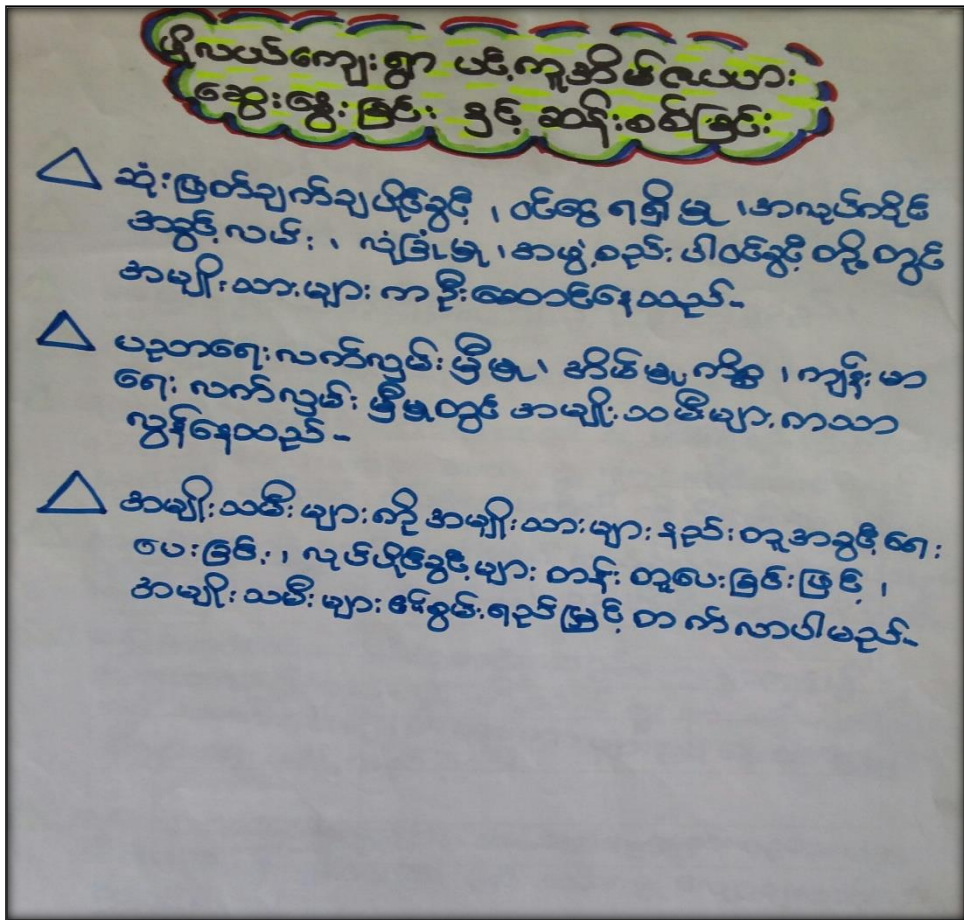 ဖိုလယ်ကျေးရွာ ပင့်ကူအိမ်ဇယား
ဆွေးနွေးခြင်း နှင့် ဆန်းစစ်ခြင်း
ဆုံးဖြတ်ချက်ချပိုင်ခွင့်၊ ဝင်ငွေရရှိမှု၊ အလုပ်ကိုင်
အခွင့်လမ်း၊ လုံခြုံမှု၊ အဖွဲ့စည်းပါဝင်ခွင့် တို့တွင်
အမျိုးသားများ က ဦးဆောင်နေသည်-
ပညာရေးလက်လှမ်းမှီမှု၊ အိမ်မှုကိစ္စ၊ ကျန်းမာ
ရေး လက်လှမ်းမှီမှုတွင် အမျိုးသမီးများ ကသာ
လွန်နေသည်-
အမျိုးသမီးများကို အမျိုးသားများနည်းတူ အခွင့်ရေး
ပေးခြင်း၊ လုပ်ပိုင်ခွင့်များ တန်းတူပေးခြင်းဖြင့်၊
အမျိုးသမီးများ စွမ်းရည်မြှင့် တက်လာပါမည်-